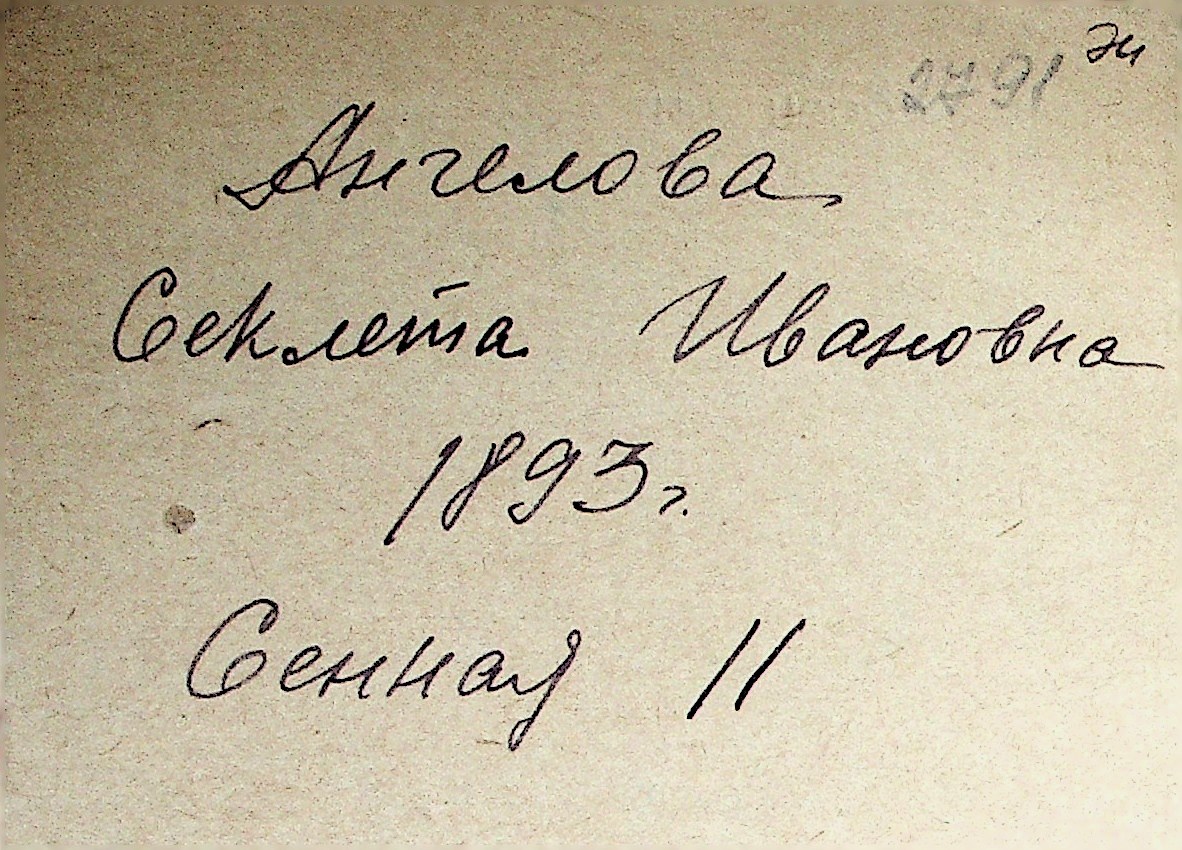 2791 эи
Ангелова
Секлета Ивановна
1893 г.
Сенная 11